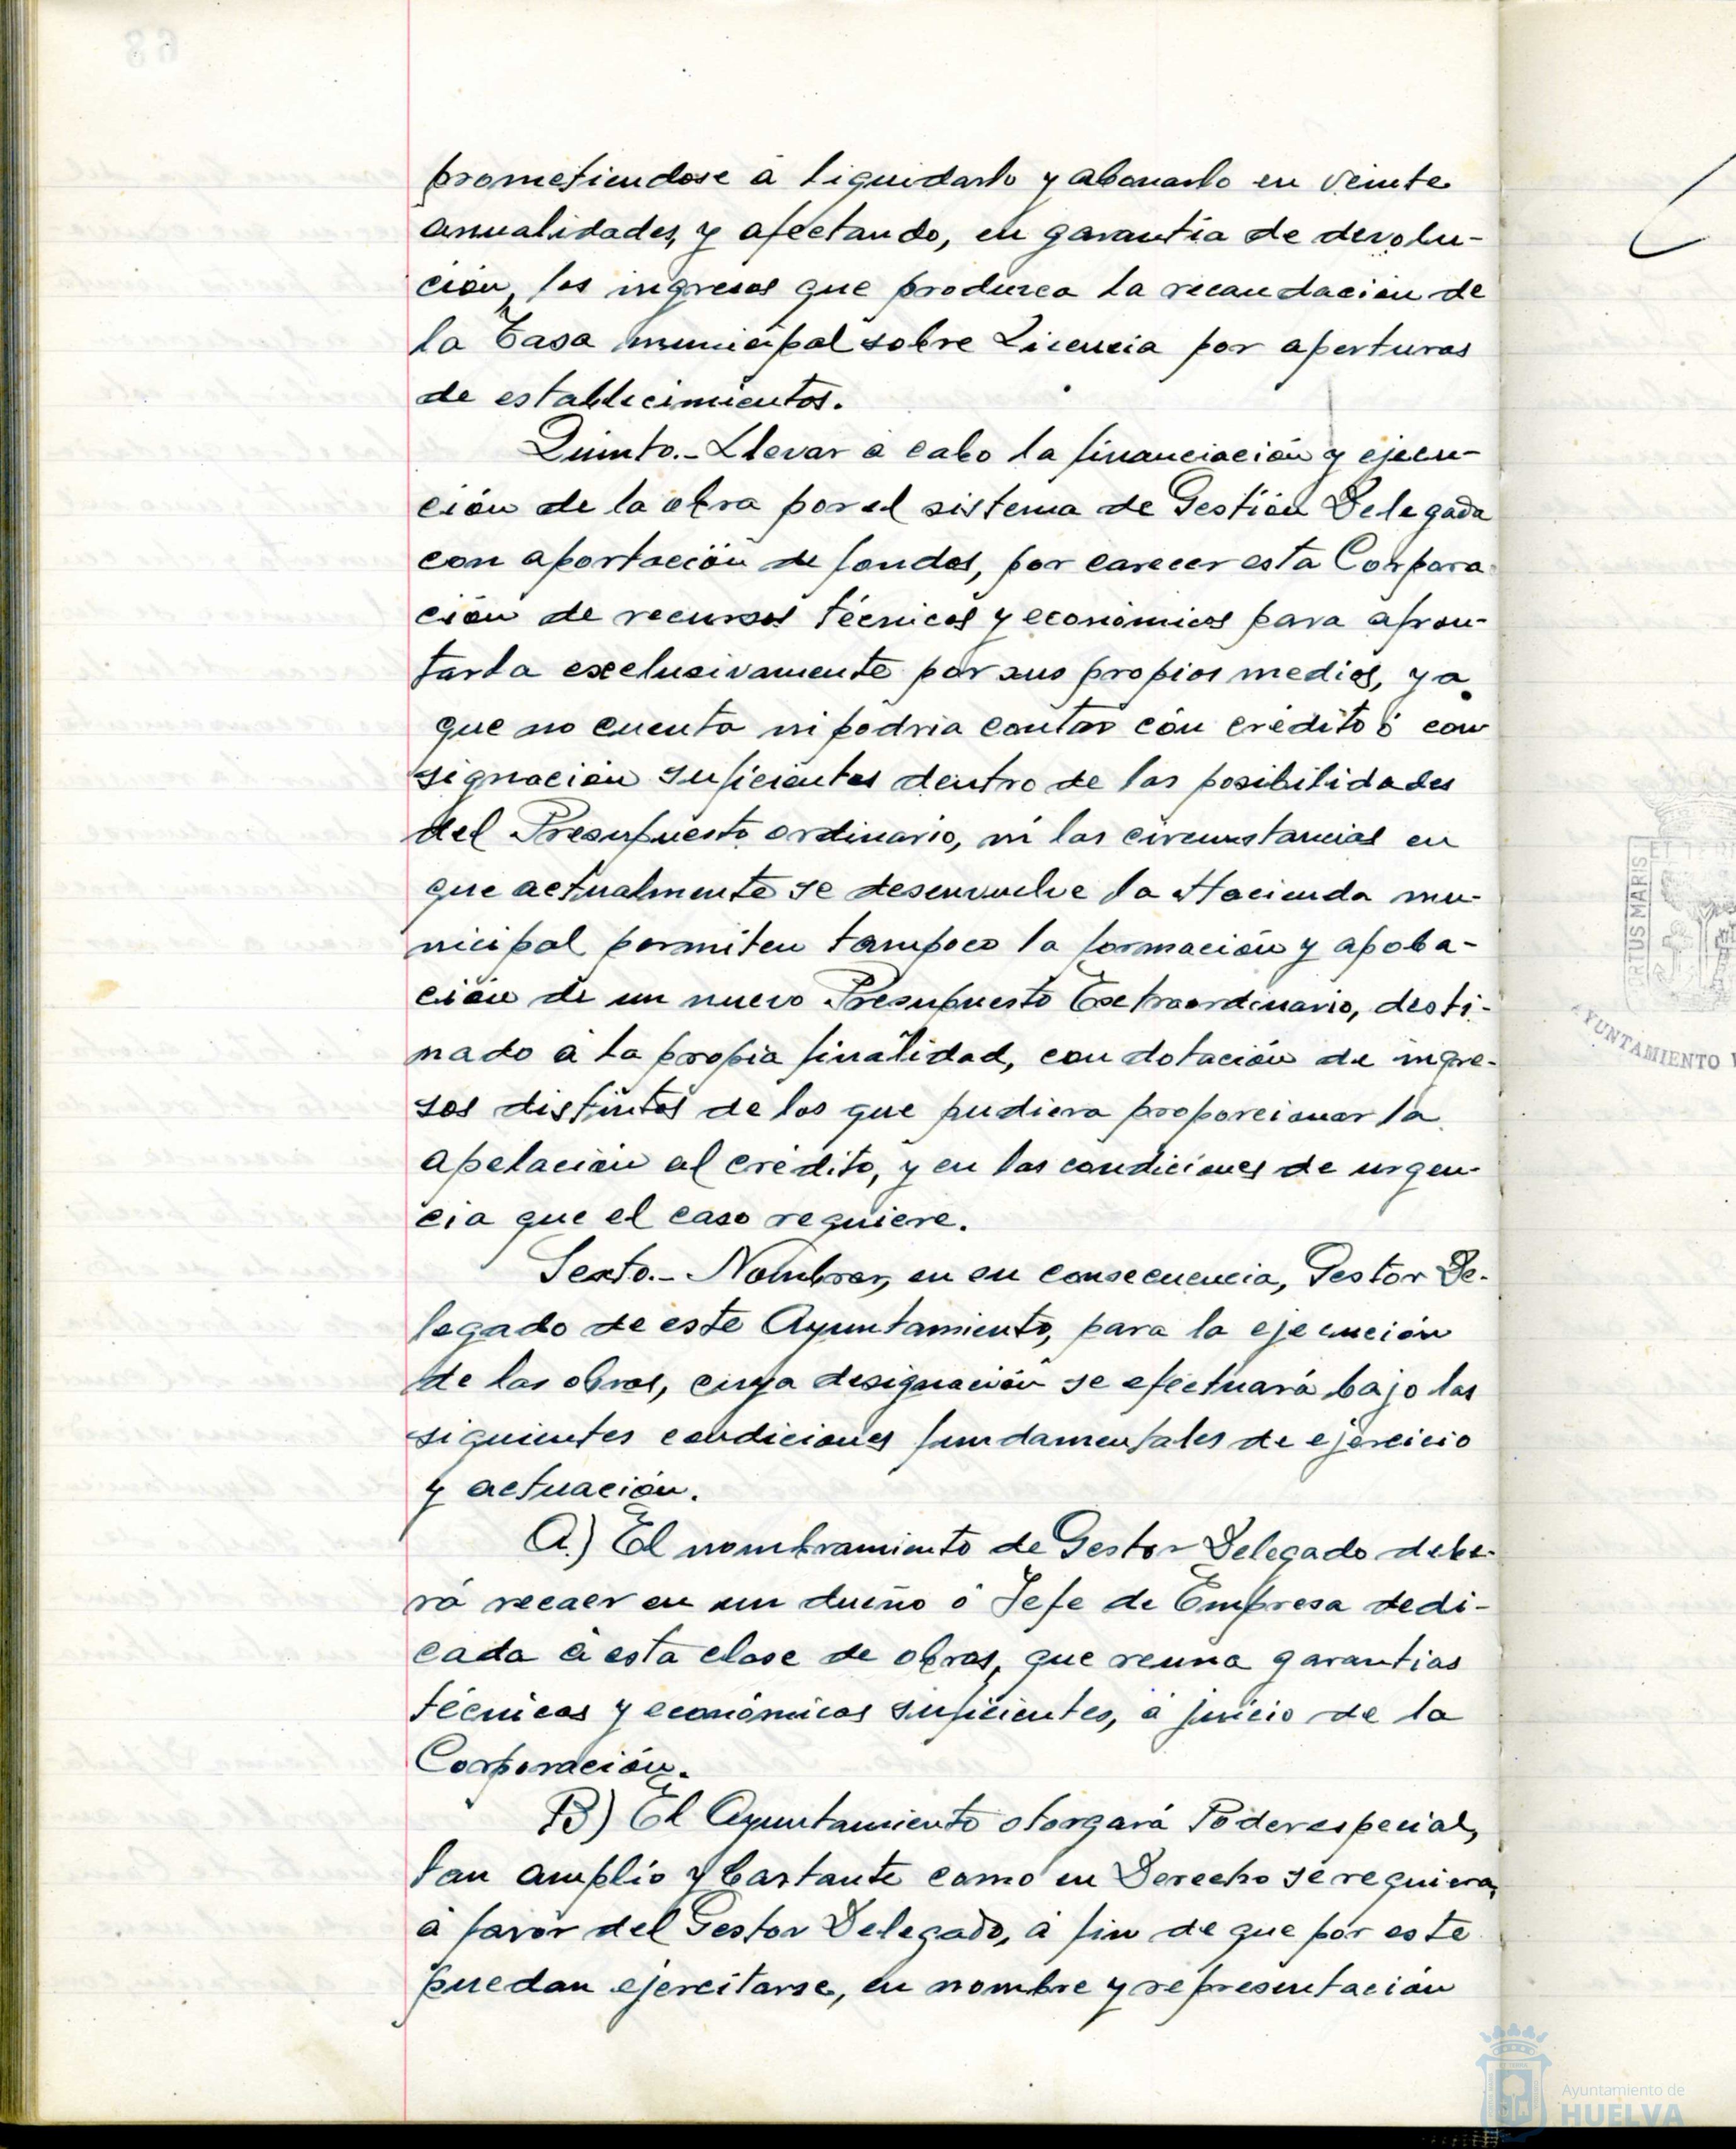 prometiendose á liquidarlo y abonarlo en veinte
anualidades, y afectando, en garantía de devolu-
ción, los ingresos que produzca la recaudación de
la Tasa municipal sobre Licencia por aperturas
de establecimientos.
Quinto.- Llevar á cabo la financiación y ejecu-
ción de la obra por el sistema de Gestión Delegada
con aportación de fondos, por carecer esta Corpora
ción de recursos técnicos y económicos para afron-
tarla exclusivamente por sus propios medios, ya
que no cuenta ni podria contar con crédito ó con
signación suficientes dentro de las posibilidades
del Presupuesto ordinario, ni las circunstancias en
que actualmente se desenvuelve la Hacienda mu-
nicipal permiten tampoco la formación y apoba-
ción de un nuevo Presupuesto Extraordinario, desti-
nado á la propia finalidad, con dotación de ingre-
sos distintos de los que pudiera proporcionar la
apelación al crédito, y en las condiciones de urgen-
cia que el caso requiere.
Sexto.- Nombrar, en su consecuencia, Gestor De-
legado de este Ayuntamiento, para la ejecución
de las obras, cuya designación se efectuará bajo las
siguientes condiciones fundamentales de ejercicio
y actuación.
A.) El nombramiento de Gestor Delegado debe-
rá recaer en un dueño ó Jefe de Empresa dedi-
cada á esta clase de obras, que reuna garantias
técnicas y económicas suficientes, á juicio de la
Corporación.
B) El Ayuntamiento otorgará Poder especial,
tan amplio y bastante como en Derecho se requiera,
á favor del Gestor Delegado, á fin de que por este
puedan ejercitarse, en nombre y representación
PORTUS MARIS
AYUNTAMIENTO
Ayuntamiento de
HUELVA